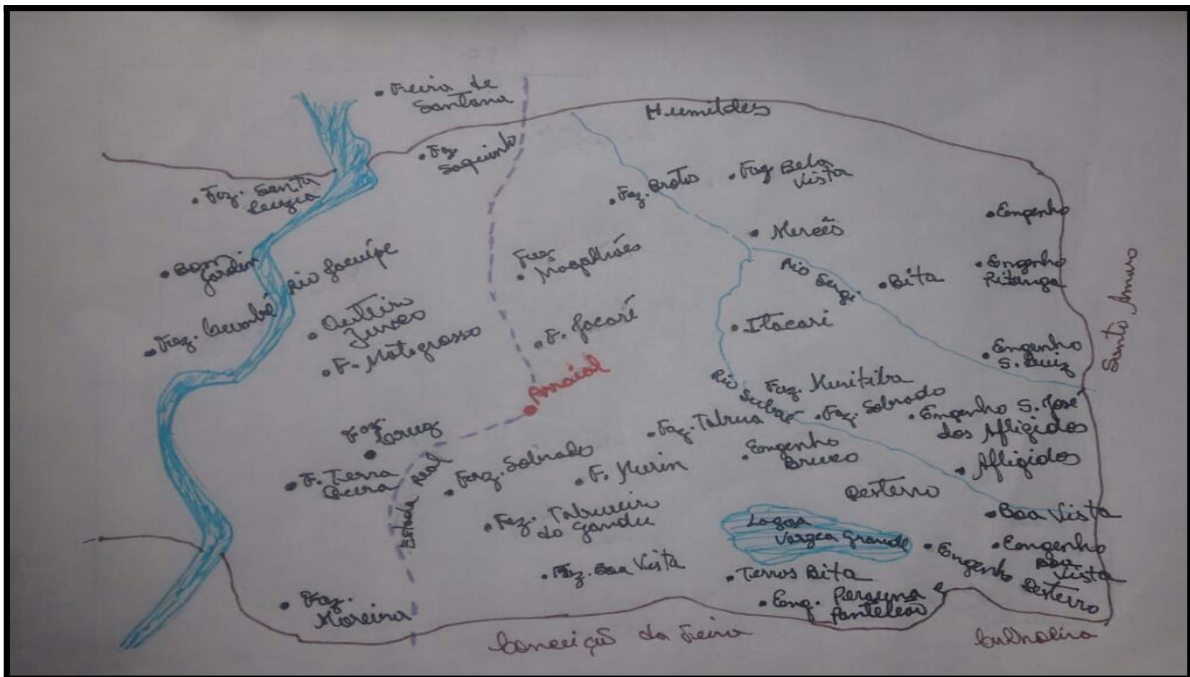 Feira de
Santana
Humildes
Faz
Saquinho
Faz. Santa
Luzia
Faz. Brotas
Faz Bela
Vista
Engenho
Mercês
Bom
Jardim
Rio Jacuípe
Faz.
Magalhães
Rio Sergi
Bita
Engenho
Pitanga
Santo Amaro
Faz. Cumbê
Outeiro
F. Matogrosso
F. Jacaré
Itacari
Engenho
S. Luiz
Arraial
Rio Subaé
Faz. Muritiba
Faz. Sobrado
Engenho S. José
dos Afligidos
Faz.
Cruz
Faz. Tabua
Engenho
Afligidos
F. Terra
Dura
Estada Real
Faz. Sobrado
F. Murin
Desterro
Faz. Tabuleiro
do Gandu
Lagoa
Vargea Grande
Boa Vista
Engenho
Boa
Vista
Engenho
Desterro
Faz. Boa Vista
Terros Bita
Faz.
Moreira
Eng. Peraúna
Panteleão
Conceição da Feira